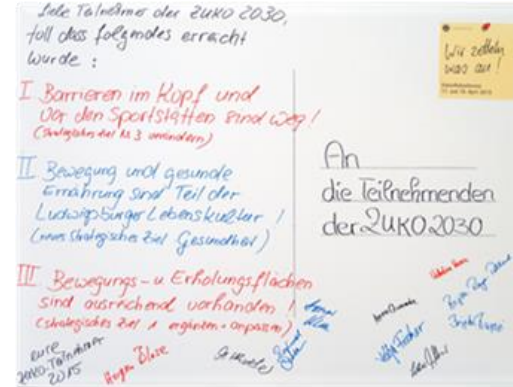 Liebe Teilnehmer der ZUKO 2030,
toll dass folgendes erreicht
wurde :
I Barrieren im Kopf und
vor den Sportstätten sind weg!
(strategisches Ziel Nr. 3 verändern)
II Bewegung und gesunde
Ernährung sind Teil der
Ludwigsburger Lebenskultur !
(neues strategisches Ziel Gesundheit)
III Bewegungs- u. Erholungsflächen
sind ausreichend vorhanden !
(strategisches Ziel ergänzen + anpassen)
eure
ZUKO-Teilnehmer
2015
Wir zetteln
was an!
An
die Teilnehmenden
der ZUKO 2030